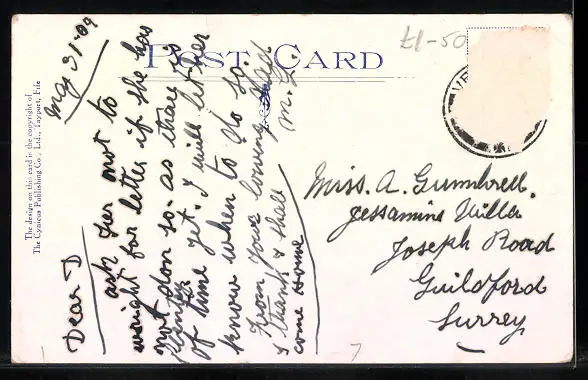 POST CARD
£1-50
The design on this card is the copyright of
The Cynicus Publishing Co., Ltd., Tayport, Fife
May 31 09
Dear D
ask Fer not to
wright for letter if she has
not don so. as there is
plenty
of time yet. I will let her
know when to do so.
From your loving Dad
M. G
I think I shall
come Home
Miss. A. Gumbrell.
Jessamine Villa
Joseph Road
Guildford
Surrey